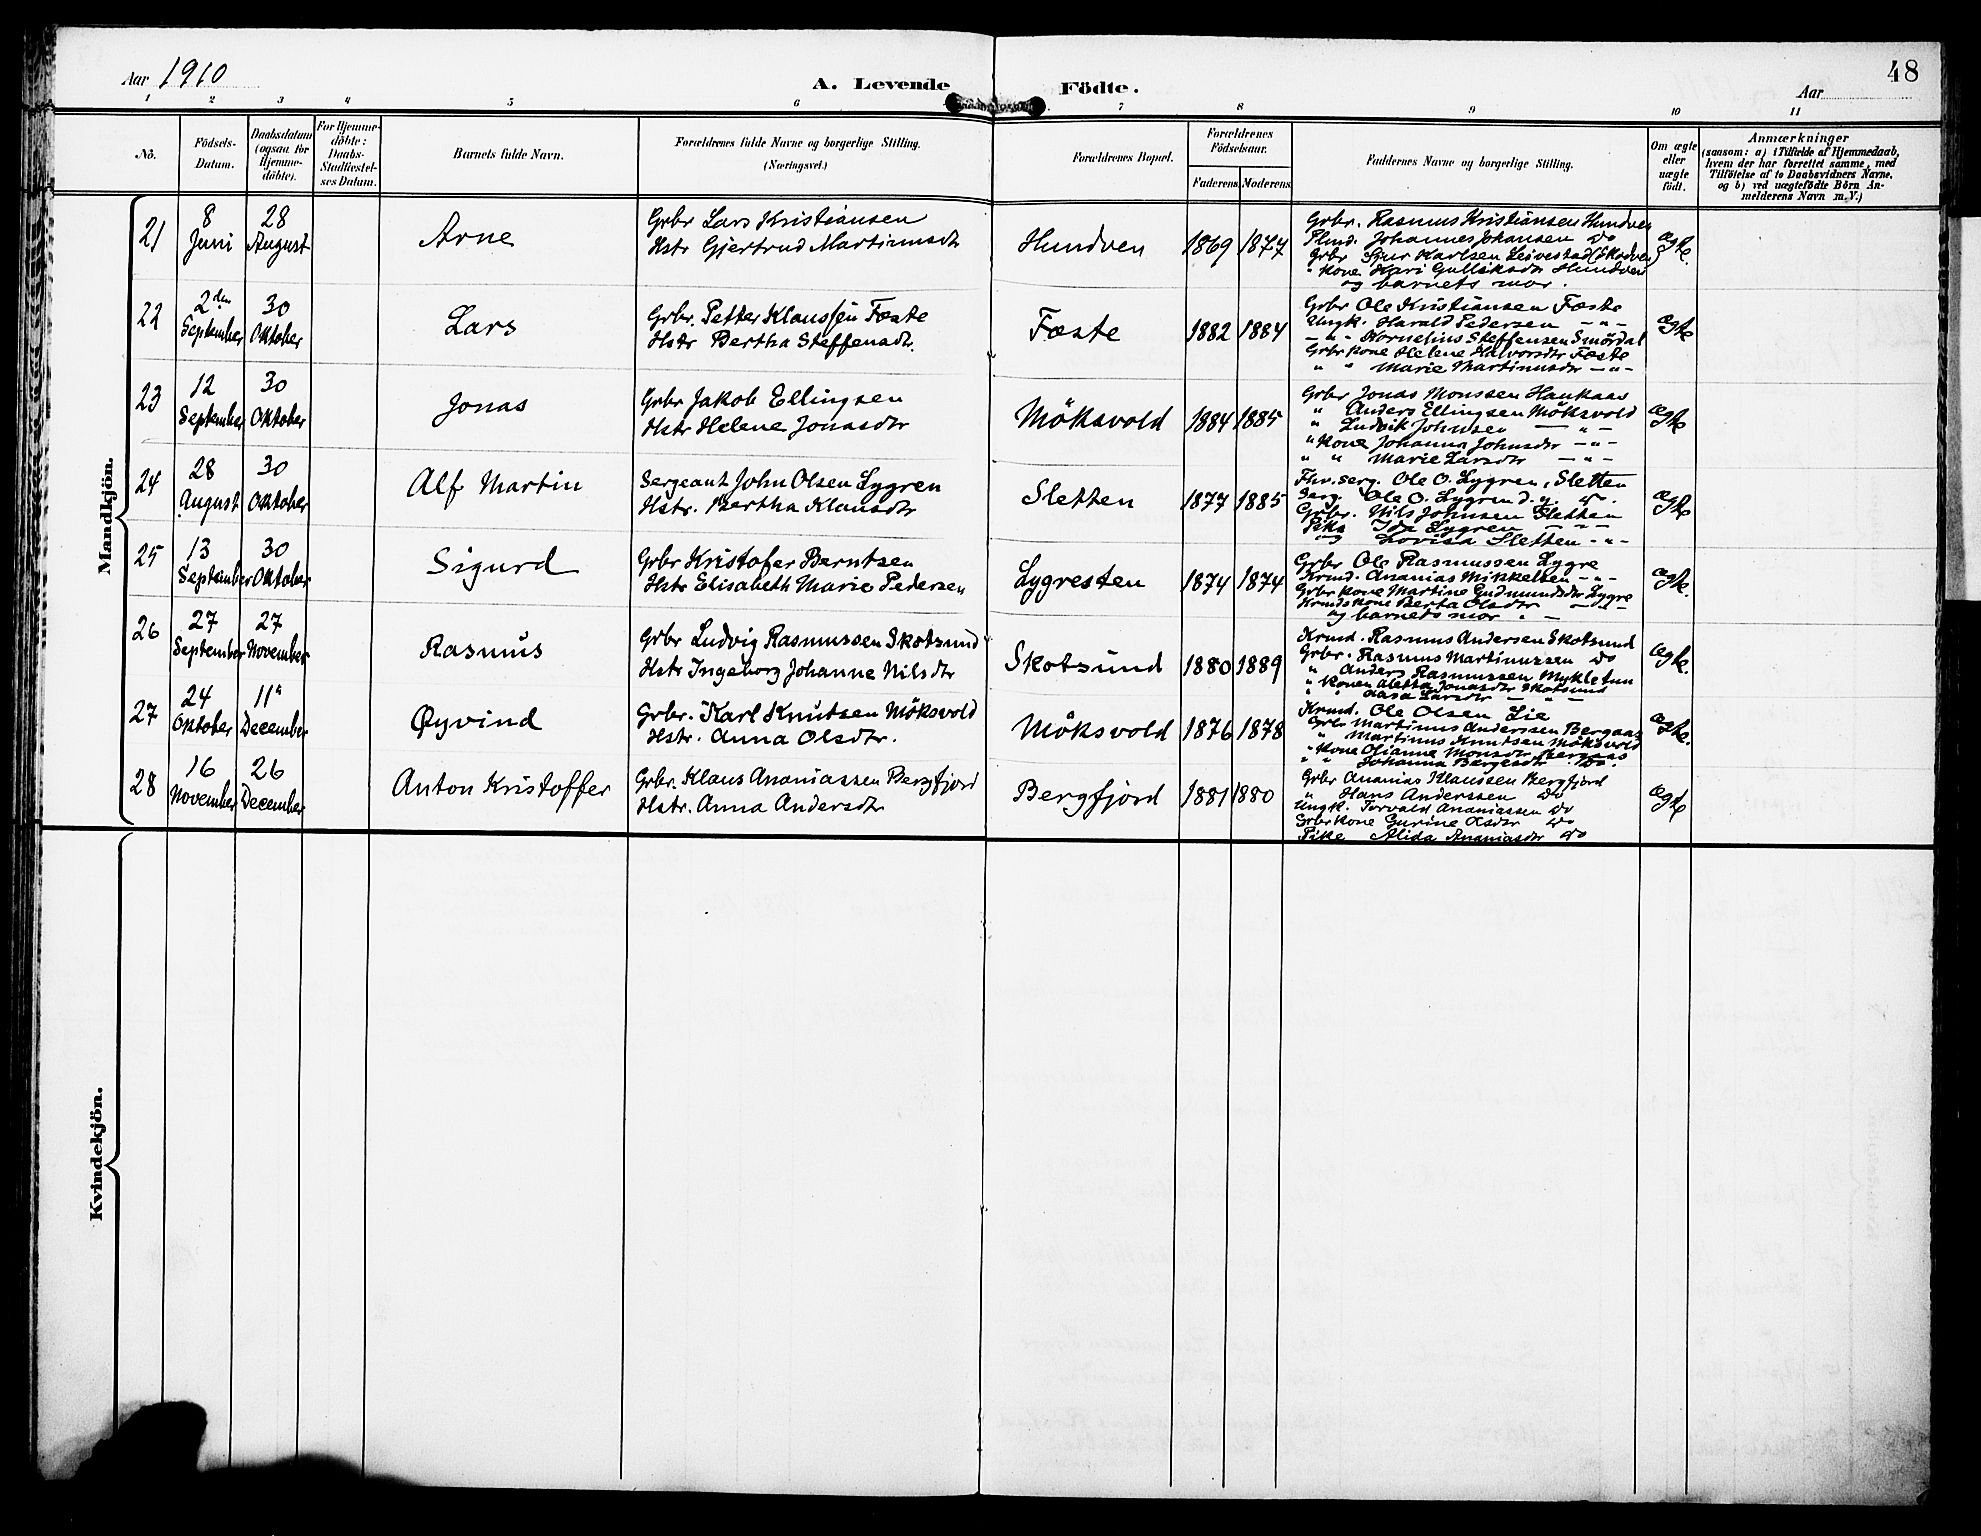 Aar 1910
A. Levende
Födte.
48
Aar
1 2 3 4 5 6 7 8 9 10 11
No.
Födsels-
Datum.
Daabsdatum
(ogsaa for
Hjemme-
döbte).
For Hjemme-
döbte:
Daabs-
Stadfæstel-
ses Datum.
Barnets fulde Navn.
Forældrenes fulde Navne og borgerlige Stilling.
(Næringsvei.)
Forældrenes Bopæl.
Forældrenes
Födselsaar.
Faderens. Moderens.
Faddernes Navne og borgerlige Stilling.
Om ægte
eller
uægte
født.
Anmærkninger
(saasom: a) i Tilfælde af Hjemmedaab,
hvem der har forrettet samme, med
Tilföielse af to Daabsvidners Navne,
og b) ved uægtefödte Börn An-
melderens Navn m. V.)
Mandkjön.
21
8
Juni
28
August
Arne
Grbr Lars Kristiansen
Hstr Gjertrud Martinusdtr
Hundven
1869 1877
Grbr. Rasmus Kristiansen Hundven
Johannes Johansen do
Grbr Sjur Karlsen Leivestad
" Kone Kari Gulliksdtr Hundven
og barnets mor.
Ægte.
22
2den
September
30
Oktober
Lars
Grbr. Petter Klaussen Fæste
Hstr Bertha Steffensdtr.
Fæste
1882 1884
Grbr Ole Kristiansen Fæste
Ungk. Harald Pedersen - " -
- " - Kornelius Steffensen Smördal
Grbr kone Helene Halvorsdtr Fæste
" " Marie Martinusdtr - " -
Ægte
23
12
September
30
Oktober
Jonas
Grbr Jakob Ellingsen
Hstr Helene Jonasdtr
Möksvold
1884 1885
Grbr Jonas Monssen Haukaas
" Anders Ellingsen Möksvold
" Ludvik Johnsen - " -
" Kone Johanna Johnsdtr - " -
" " Marie Larsdtr - " -
Ægte
24
28
August
30
Oktober
Alf Martin
Sergeant John Olsen Lygren
Hstr. Bertha Klausdtr
Sletten
1877 1885
Fhv. serg. Ole O. Lygren, Sletten
Serg. Ole O. Lygren d. y. do.
Grbr. Nils Johnsen Sletten
Pike Ida Lygren - " -
og Lovisa Sletten - " -
Ægte
25
13
September
30
Oktober
Sigurd
Grbr Kristofer Berntsen
Hstr Elisabeth Marie Pedersen
Lygresten
1874 1874
Grbr Ole Rasmussen Lygre
Krmd. Ananias Mikkelsen - " -
Grbr kone Martine Gudmundsdtr Lygre
Krmdskone Berta Olsdtr - " -
og barnets mor. -
Ægte.
26
27
September
27
November
Rasmus
Grbr Ludvig Rasmussen Skotsund
Hstr Ingeborg Johanne Nilsdtr
Skotsund
1880 1889
Krmd. Rasmus Andersen Skotsund
Grbr. Rasmus Martinussen do
" Anders Rasmussen Mykletun
" Konen Aletta Jonasdtr Skotsund
" " Aasa Larsdtr - " -
Ægte.
27
24
Oktober
11te
December
Øyvind
Grbr. Karl Knutsen Möksvold
Hstr. Anna Olsdtr.
Möksvold
1876 1878
Krmd. Ole Olsen Lie
Grbr Martinus Anderssen Bergaas
" Martinus Knutsen Möksvold
" Kone Olianne Monsdtr Bergaas
" " Johanna Børgesdtr do.
Ægte.
28
16
November
26
December
Anton Kristoffer
Grbr. Klaus Ananiassen Bergfjord
Hstr. Anna Andersdtr
Bergfjord
1881 1880
Grbr Ananias Klaussen Bergfjord
" Hans Anderssen do
Ungk. Torvald Ananiassen do
Grbr kone Gurine Olsdtr do
Pike Alida Ananiasdtr do
Ægte
Kvindekjön.